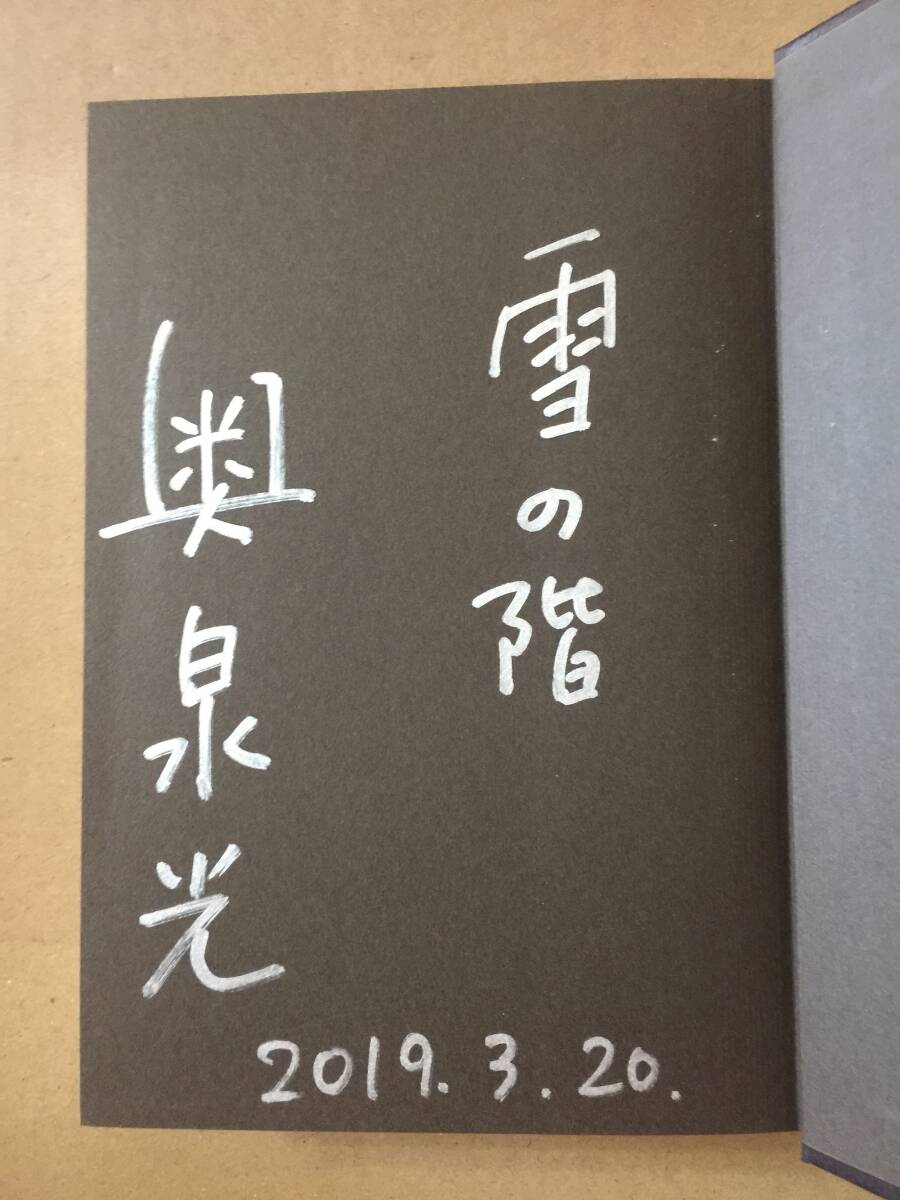 雪の階
奥泉光
2019.3.20.